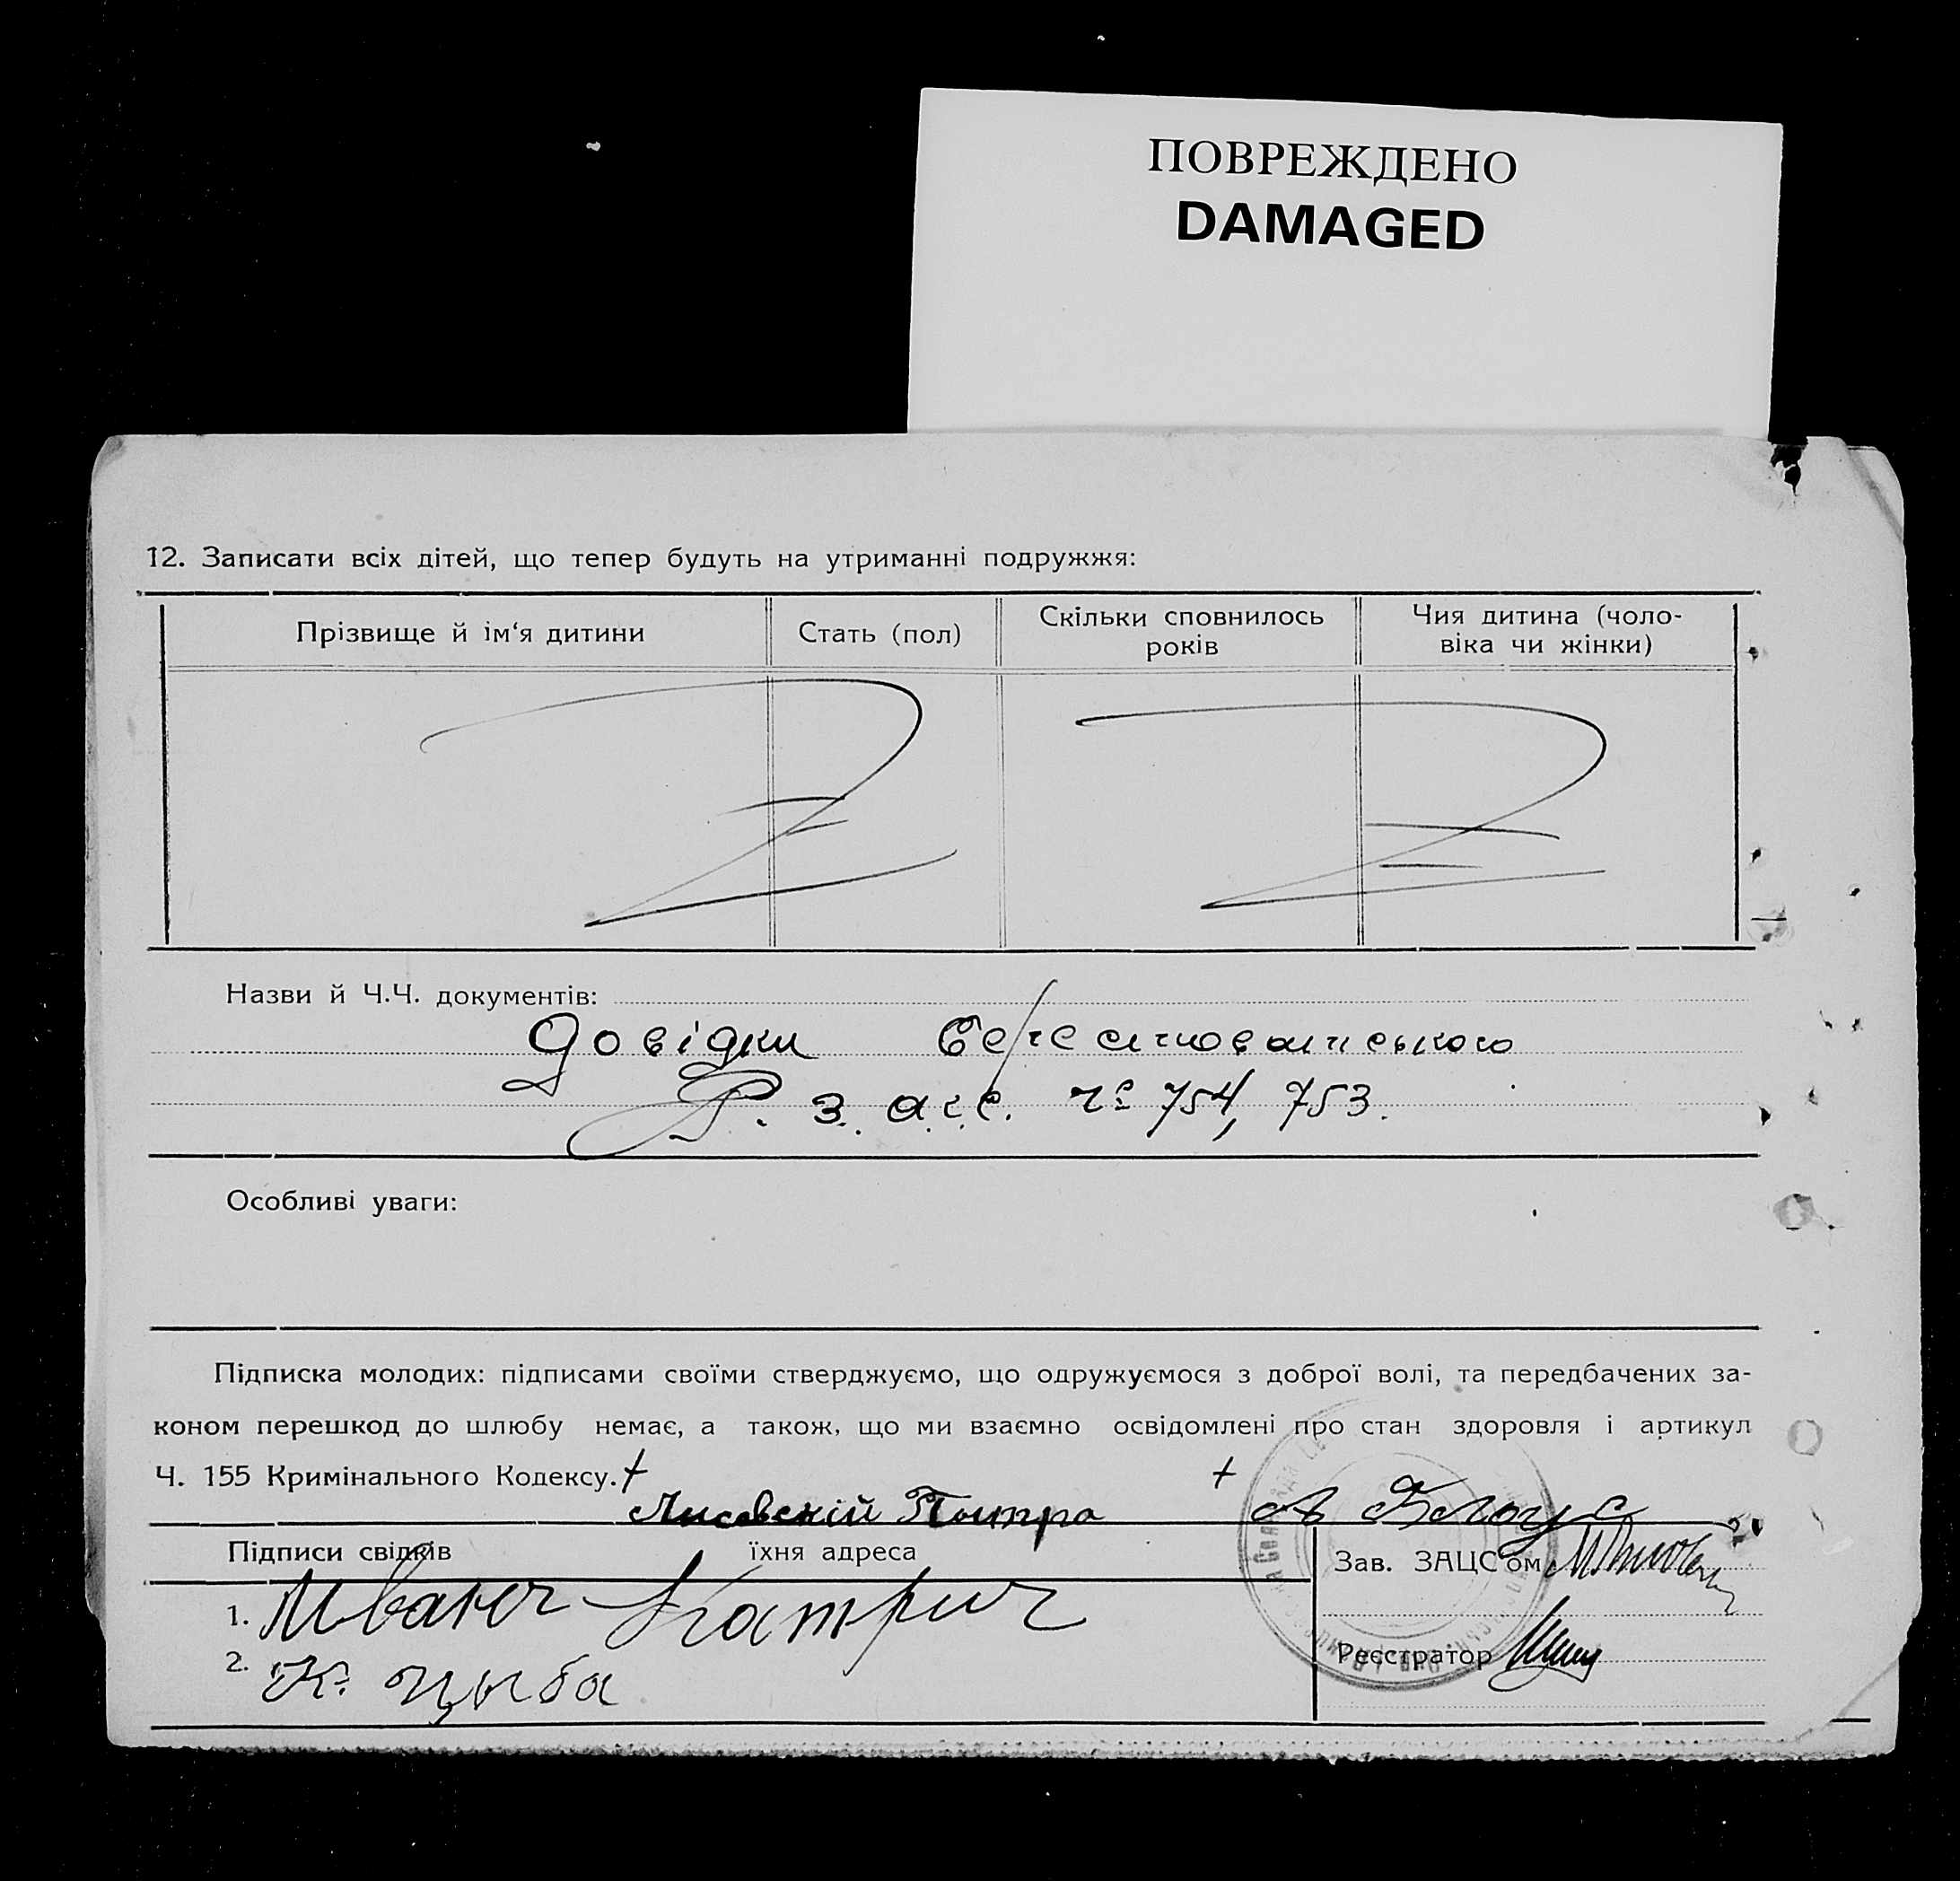 ПОВРЕЖДЕНО
DAMAGED
12. Записати всіх дітей, що тепер будуть на утриманні подружжя:
Прізвище й ім‘я дитини
Стать (пол)
Скільки сповнилось
років
Чия дитина (чоло-
віка чи жінки)
Назви й Ч.Ч. документів:
Довідки
Р. з. а.г.с. 754, 753.
Особливі уваги:
Підписка молодих: підписами своїми стверджуємо, що одружуємося з доброї волі, та передбачених за-
коном перешкод до шлюбу немає, а також, що ми взаємно освідомлені про стан здоровля і артикул
Ч. 155 Кримінального Кодексу. + +
Лисовскій А Білоус
Підписи свідків їхня адреса
Зав. ЗАЦС ом
1.
2. К. Цыба
Реєстратор